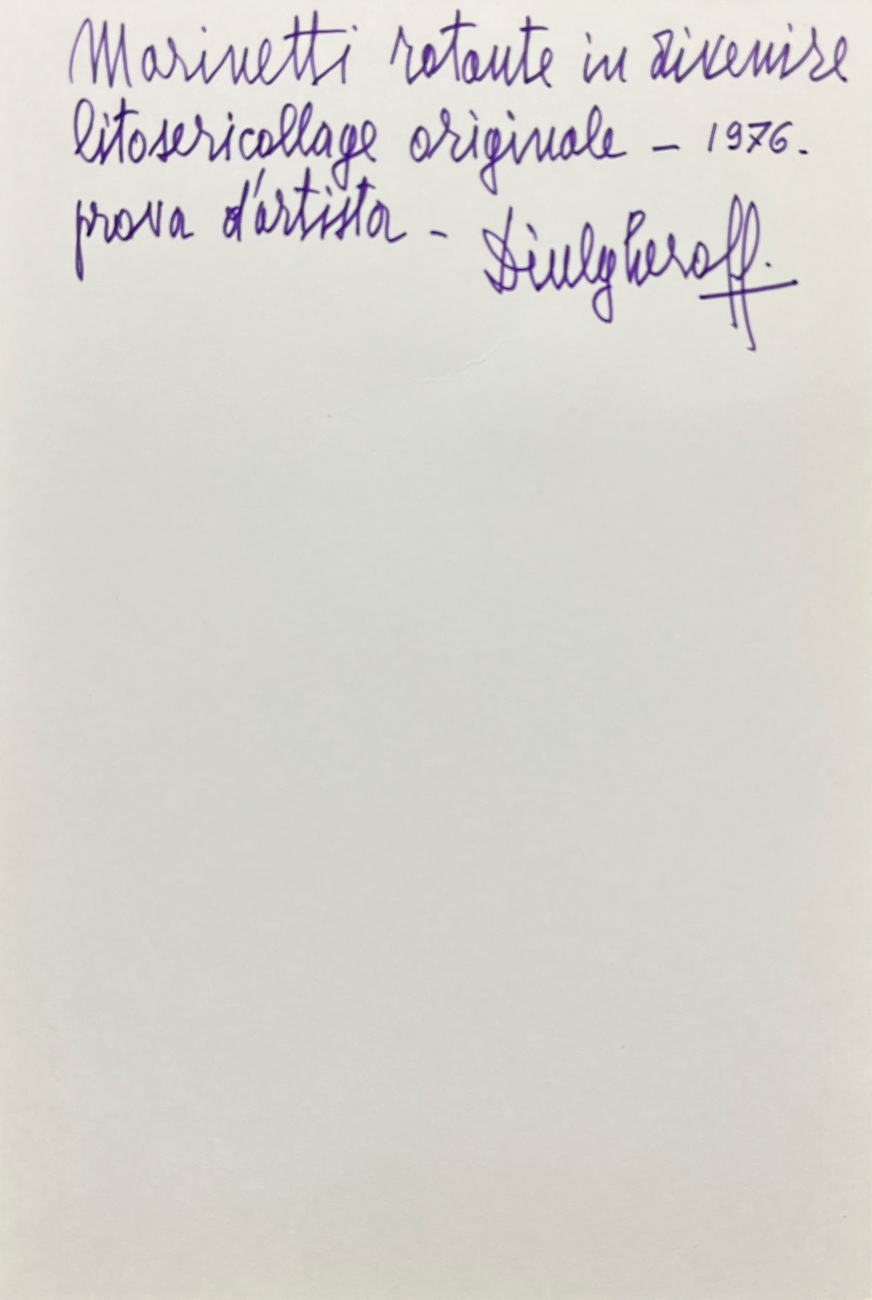 Marinetti rotante in divenire
litosericollage originale – 1976.
prova d'artista – Diulgheroff.